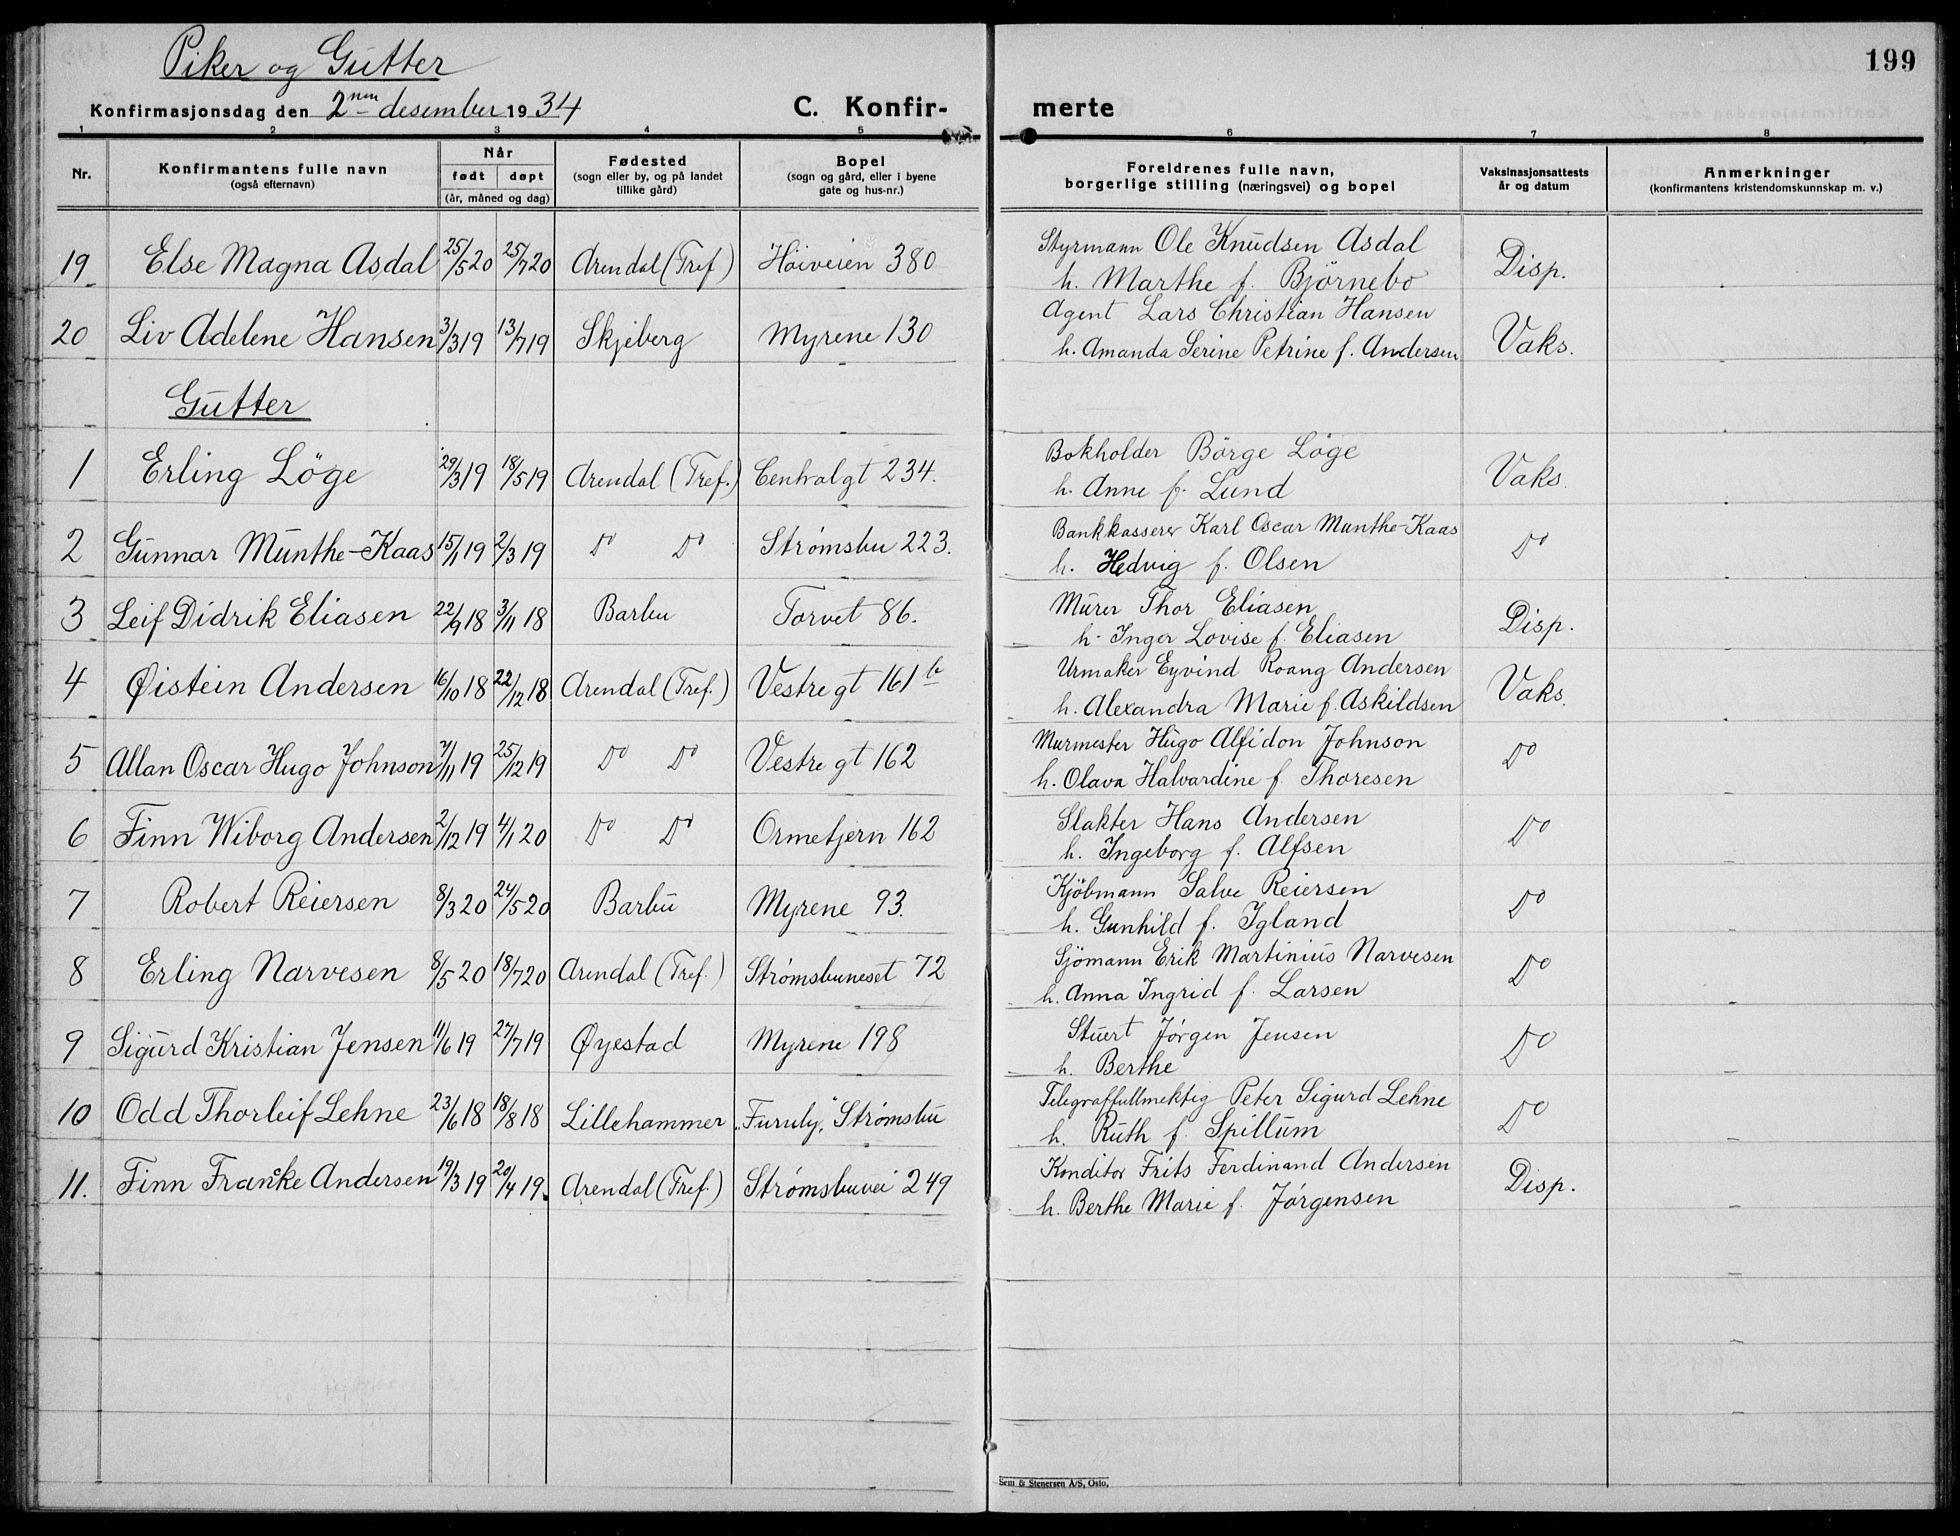 Piker og Gutter
199
Konfirmasjonsdag den 2nen desember 1934
C. Konfir-
merte
1 2 3 4 5 6 7 8
Nr.
Konfirmantens fulle navn
(også efternavn)
Når
født døpt
(år, måned og dag)
Fødested
(sogn eller by, og på landet
tillike gård)
Bopel
(sogn og gård, eller i byene
gate og hus-nr.)
Foreldrenes fulle navn,
borgerlige stilling (næringsvei) og bopel
Vaksinasjonsattests
år og datum
Anmerkninger
(konfirmantens kristendomskunnskap m. v.)
19 Else Magna Asdal 25/5 20 25/7 20 Arendal (Tref) Høiveien 380 Styrmann Ole Knudsen Asdal Disp.
h. Marthe f. Björnebo
20 Liv Adelene Hansen 3/3 19 13/7 19 Skjeberg Myrene 130 Agent Lars Christian Hansen Vaks.
h. Amanda Serine Petrine f. Andersen
Gutter
1 Erling Löge 29/3 19 18/5 19 Arendal (Tref.) Centralgt 234. Bokholder Börge Löge Vaks.
h. Anne f. Lund
2 Gunnar Munthe-Kaas 15/1 19 2/3 19 Do Do Strømsbu 223. Bankkasserer Karl Oscar Munthe-Kaas Do
h. Hedvig f. Olsen
3 Leif Didrik Eliasen 22/9 18 3/11 18 Barbu Torvet 86. Murer Thor Eliasen Disp.
h. Inger Lovise f. Eliasen
4 Øistein Andersen 16/10 18 22/12 18 Arendal (Tref.) Vestregt 161 b Urmaker Eyvind Roang Andersen Vaks.
h. Alexandra Marie f. Askildsen
5 Allan Oscar Hugo Johnson 7/11 19 25/12 19 Do Do Vestre gt 162 Murmester Hugo Alfidon Johnson Do
h. Olava Halvardine f. Thoresen
6 Finn Wiborg Andersen 2/12 19 4/1 20 Do Do Ormetjern 162 Slakter Hans Andersen Do
h. Ingeborg f. Alfsen
7 Robert Reiersen 8/3 20 24/5 20 Barbu Myrene 93. Kjöbmann Salve Reiersen Do
h. Gunhild f. Igland
8 Erling Narvesen 8/5 20 18/7 20 Arendal (Tref.) Strømsbuneset 72 Sjömann Erik Martinius Narvesen Do
h. Anna Ingrid f. Larsen
9 Sigurd Kristian Jensen 11/6 19 27/7 19 Øyestad Myrene 198 Stuert Jørgen Jensen Do
h. Berthe
10 Odd Thorleif Lehne 23/6 18 18/8 18 Lillehammer „Furuly," Strømsbu Telegraffullmektig Peter Sigurd Lehne Do
h. Ruth f. Spillum
11. Finn Francke Andersen 19/3 19 20/4 19. Arendal (Tref.) Strømsbuvei 249 Konditor Frits Ferdinand Andersen Disp.
h. Berthe Marie f. Jørgensen
Sem & Stenersen A/S, Oslo.